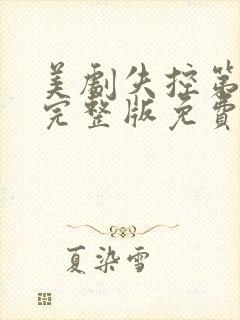 美劇失控第
完整版免費
夏染雪